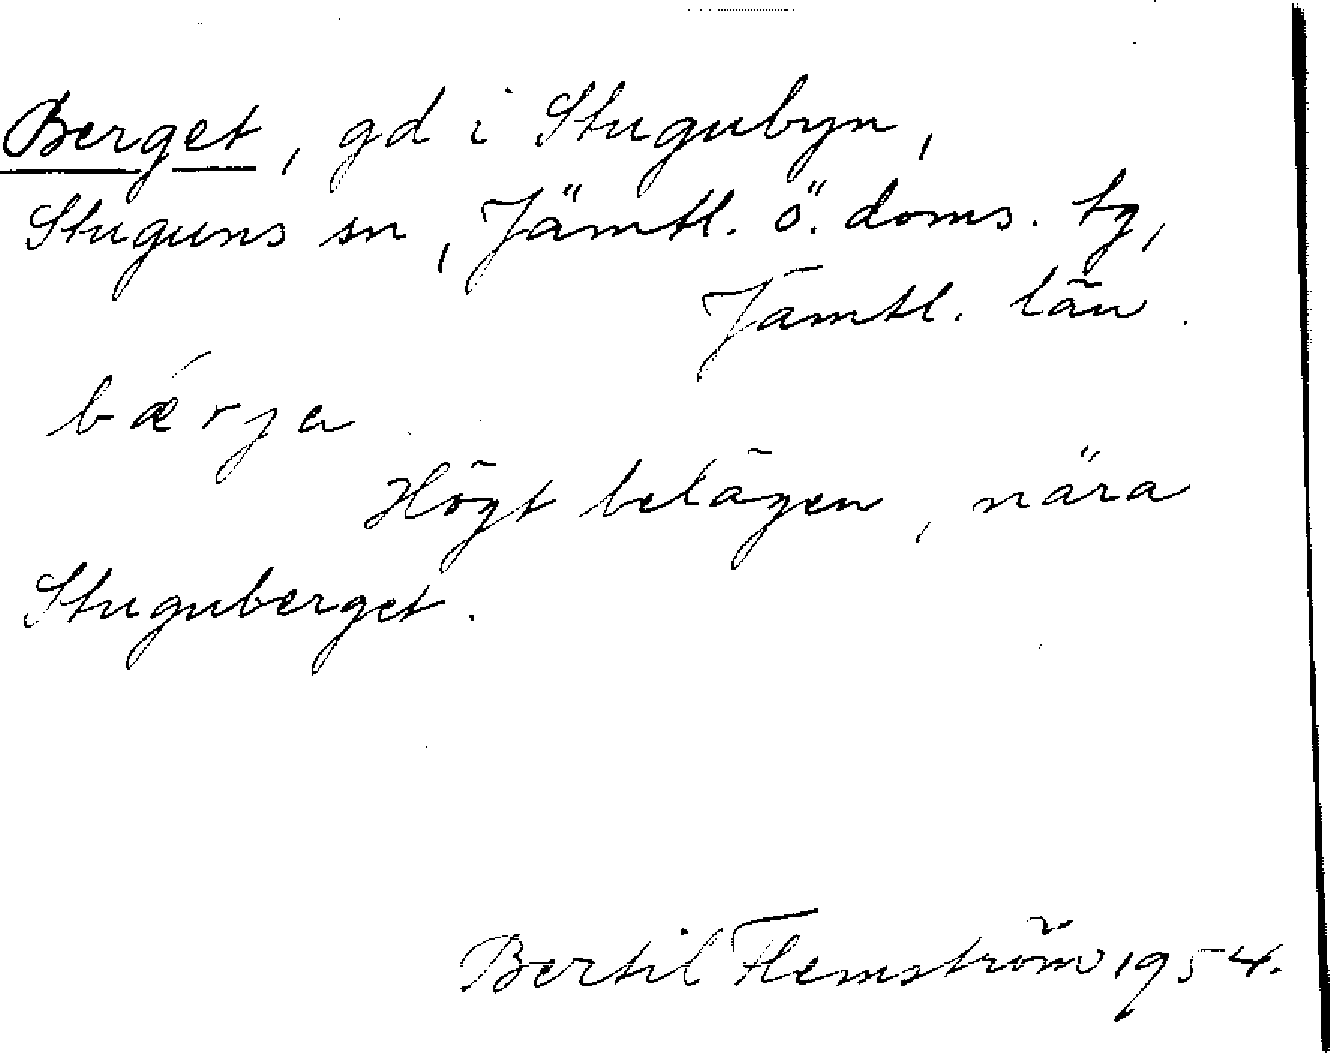 Berget, gd i Stugubyn,
Stuguns sn, Jämtl. ö. doms. tg,
Jämtl. län.
bǽrja
Högt belägen, nära
Stuguberget.
Bertil Flemström 1954.